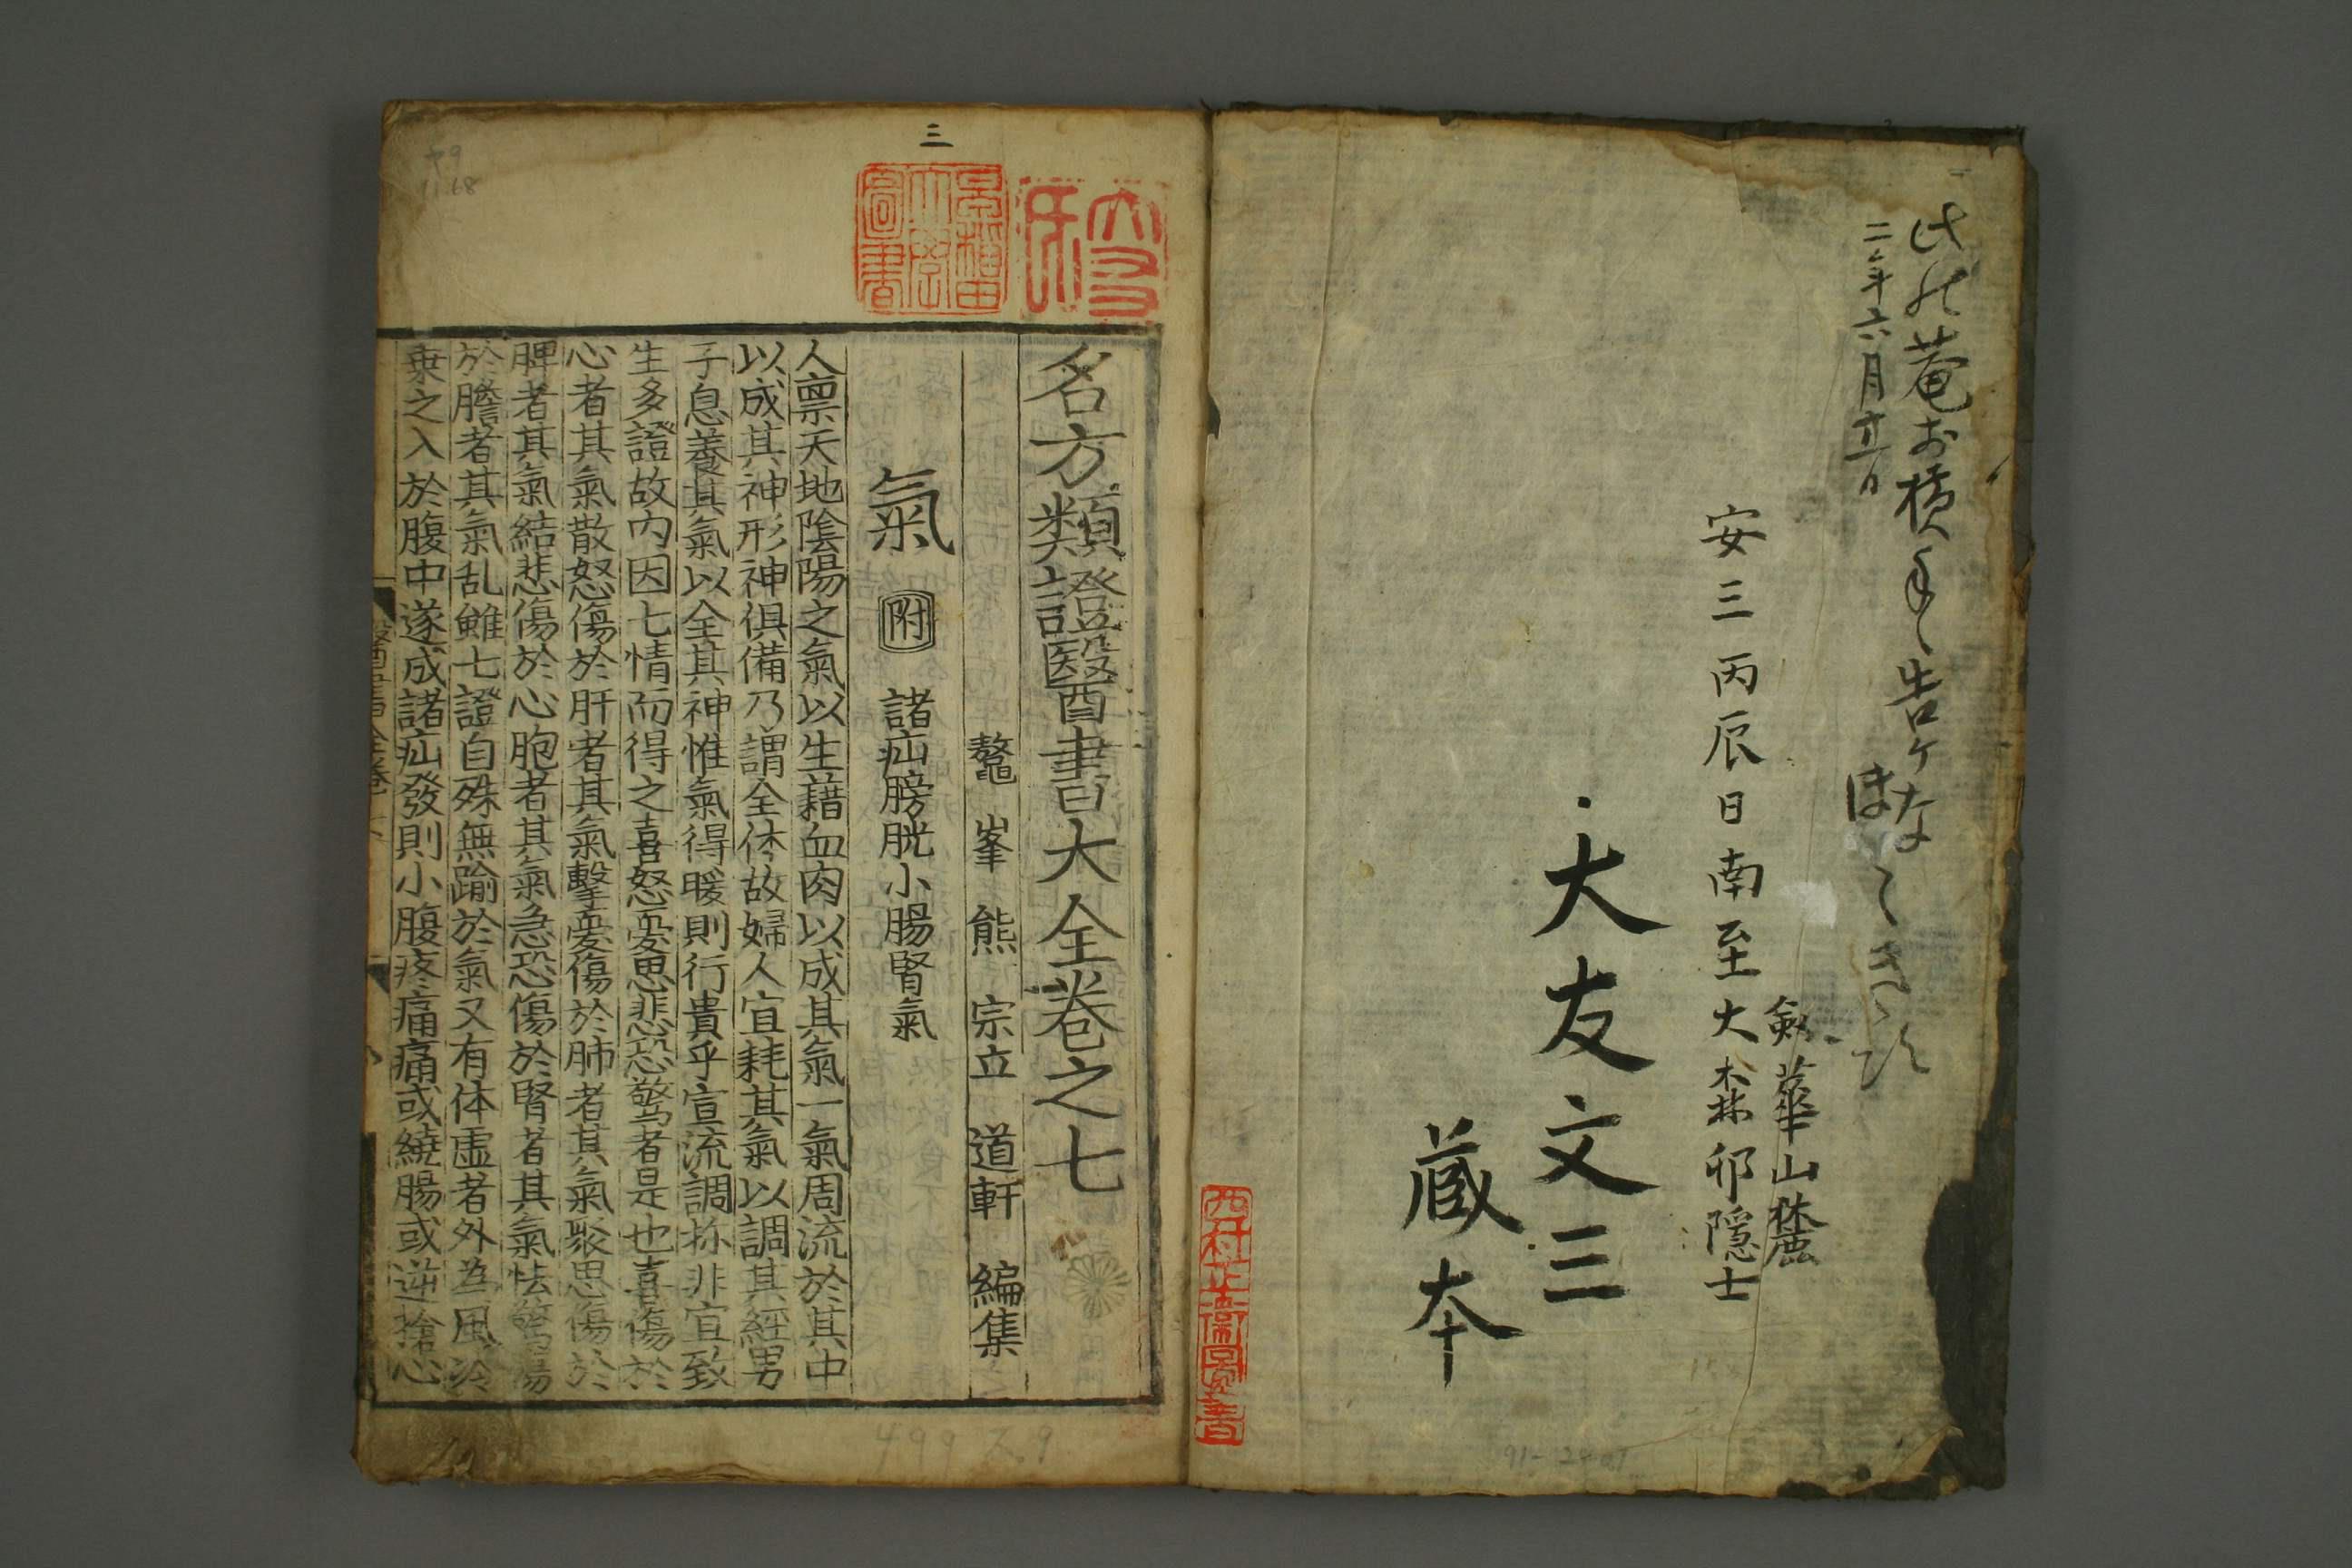 二年六月廿一日
安三丙辰日南至大森邜隠士
剱華山麓
大友文三
蔵本
三
早稲田大學圖書
名方類證醫書大全卷之七
鼇峯熊宗立道軒編集
氣 附 諸疝膀胱小腸腎氣
人禀天地陰陽之氣以生藉血肉以成其氣一氣周流於其中
以成其神形神俱備乃謂全体故婦人宜耗其氣以調其經男
子息養其氣以全其神惟氣得暖則行貴乎宣流調拆非宜致
生多證故内因七情而得之喜怒憂思悲恐驚者是也喜傷於
心者其氣散怒傷於肝者其氣擊憂傷於肺者其氣聚思傷於
脾者其氣結悲傷於心胞者其氣急恐傷於腎者其氣怯驚傷
於膽者其氣乱雖七證自殊無踰於氣又有体虛者外為風冷
乗之入於腹中遂成諸疝發則小腹疼痛痛或繞腸或逆搶心